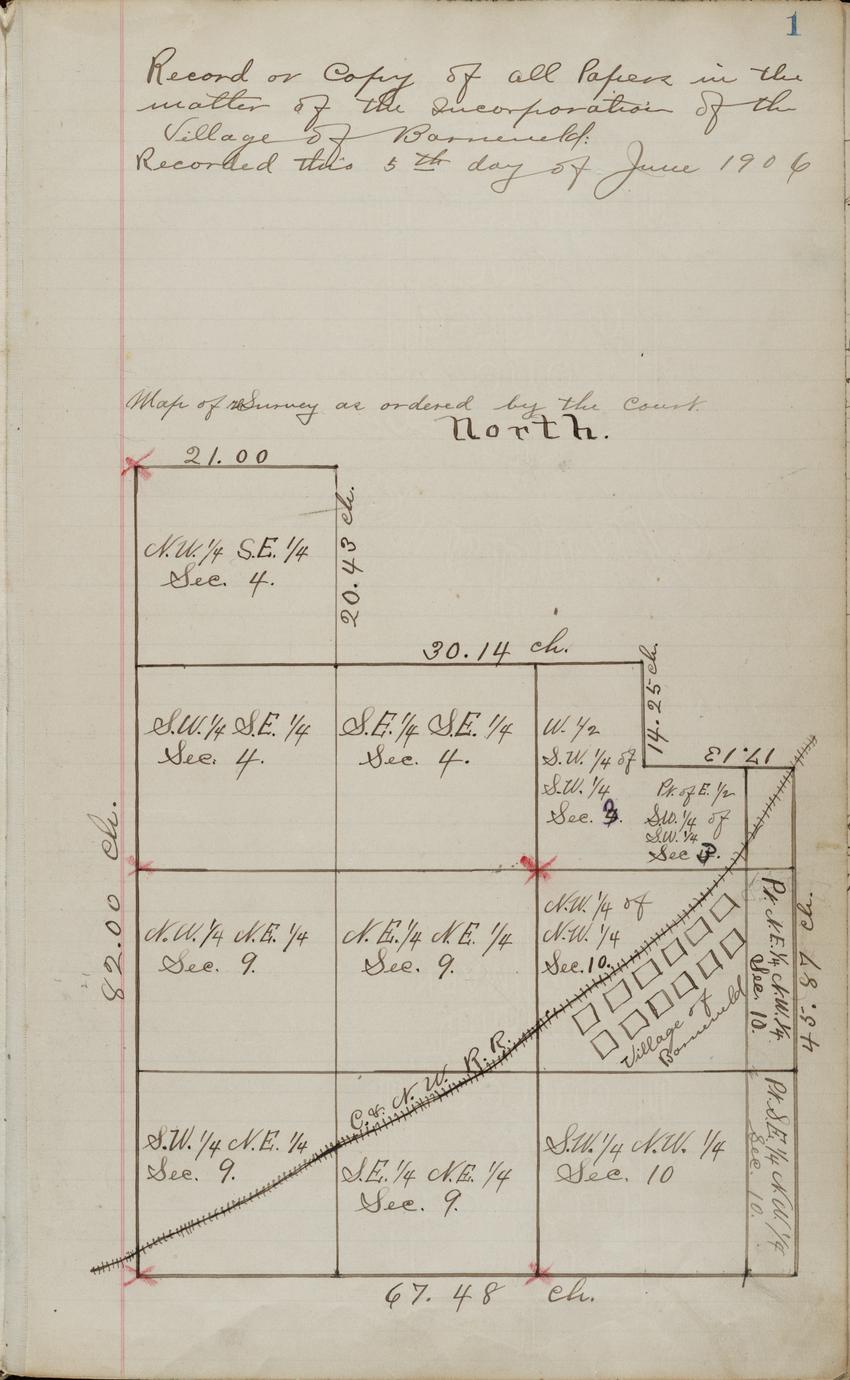 1
Record or Copy of all Papers in the
matter of the Incorporation of the
Village of Barneveld:
Recorded this 5th day of June 1906
Map of reSurvey as ordered by the Court.
North.
21.00
N.W. 1/4 S.E. 1/4
Sec. 4.
20.43 ch.
30.14 ch.
14.25 ch.
17.13
82.00 ch.
S.W. 1/4 S.E. 1/4
Sec. 4.
S.E. 1/4 S.E. 1/4
Sec. 4.
W. 1/2
S.W. 1/4 of
S.W. 1/4
Sec. 3.
Pt. of E. 1/2
S.W. 1/4 of
S.W. 1/4
Sec 3.
N.W. 1/4 N.E. 1/4
Sec. 9.
N.E. 1/4 N.E. 1/4
Sec. 9.
N.W. 1/4 of
N.W. 1/4
Sec. 10.
Village of
Barneveld
Pt. N.E. 1/4 N.W. 1/4
Sec. 10.
45.87 ch.
C. & N. W. R. R.
S.W. 1/4 N.E. 1/4
Sec. 9.
S.E. 1/4 N.E. 1/4
Sec. 9.
S.W. 1/4 N.W. 1/4
Sec. 10
Pt. S.E. 1/4 N.W. 1/4
Sec. 10.
67.48 ch.